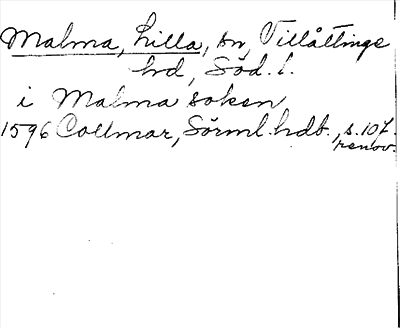 Malma, Lilla, sn, Villåttinge
hd, Söd. l.
i Malma soken
1596 Collmar, Sörml. hdb., s. 107.
renov.